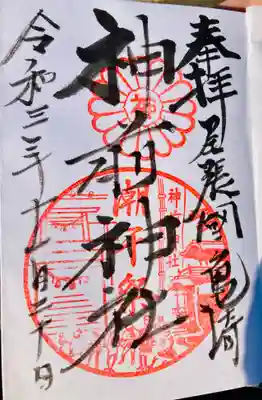 奉拝 尾張國亀崎
神前神社
潮干祭
令和三年十一月二十日